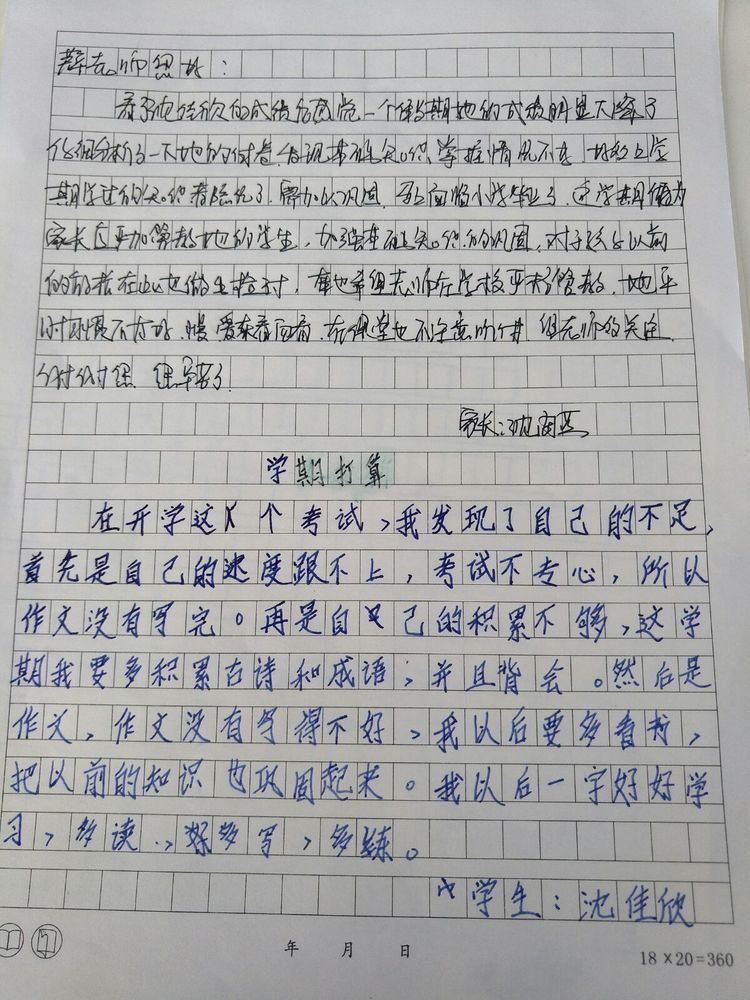 老师您好：
看了沈佳欣的成绩后感觉一个假期她的成绩明显下降了
仔细分析了一下她的付卷，发现基础知识掌握情况不夯，好多上学
期学过的知识看隐化了，需加以巩固，马上面临小学毕业了，这学期作为
家长应严加管教她的学生，加强基础知识的巩固，对于孩子以前
的放松在此也做出检讨，也希望老师在学校严格管教，她平
时习惯不太好，慢爱东看西看，在课堂也不注意听讲，望老师多关注
付付您 您辛苦了！
家长：沈
学期打算
在开学这个考试，我发现了自己的不足，
首先是自己的速度跟不上，考试不专心，所以
作文没有写完。再是自己的积累不够，这学
期我要多积累古诗和成语，并且背会。然后是
作文，作文没有写得不好，我以后要多看书，
把以前的知识也巩固起来。我以后一字好好学
习，多读，好多写，多练。
学生：沈佳欣
年 月 日
18×20=360